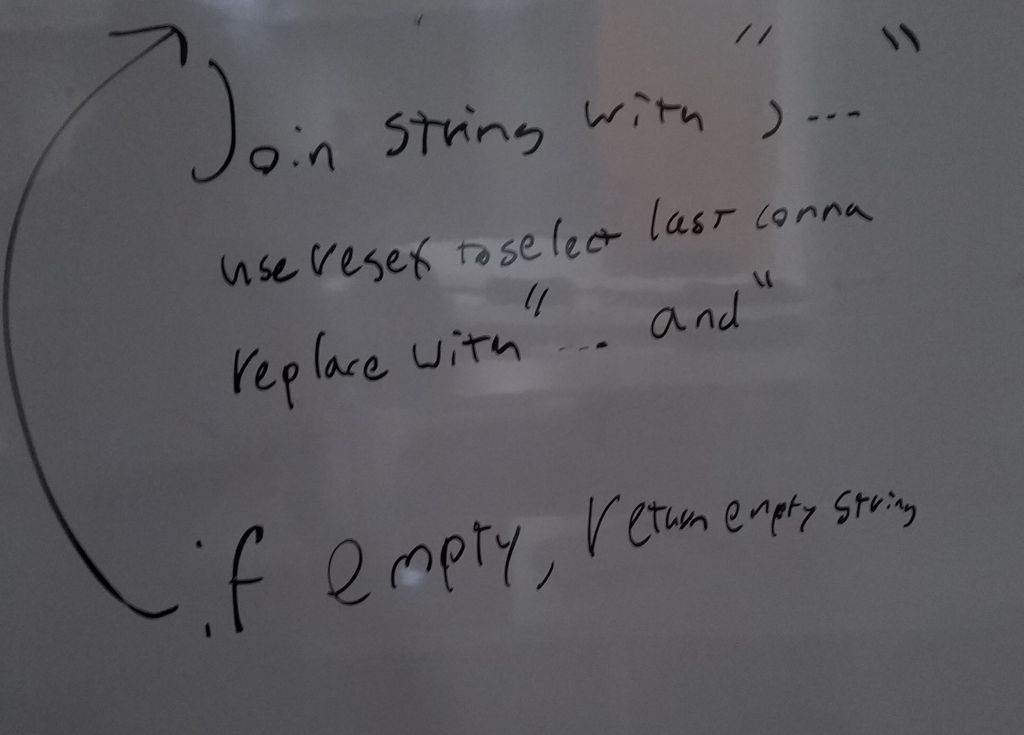 Join string with ", ---"
use regex to select last comma
replace with "--- and"
if empty, return empty string